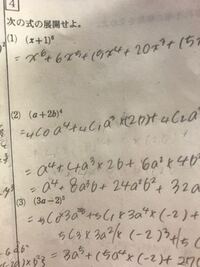 4
次の式の展開せよ。
(1) (x+1)⁶
= x⁶+6x⁵+15x⁴+20x³+15x
(2) (a+2b)⁴
=₄C₀a⁴+₄C₁a³×(2b)+₄C₂a²
= a⁴+4a³×2b+6a²×4b²
= a⁴+8a³b+24a²b²+32a
(3) (3a-2)⁵
=₅C₀3a⁵+₅C₁×3a⁴×(-2)+
₅C₃×3a²×(-2)³+₅C
=3a⁵+15a⁴×(-2)+